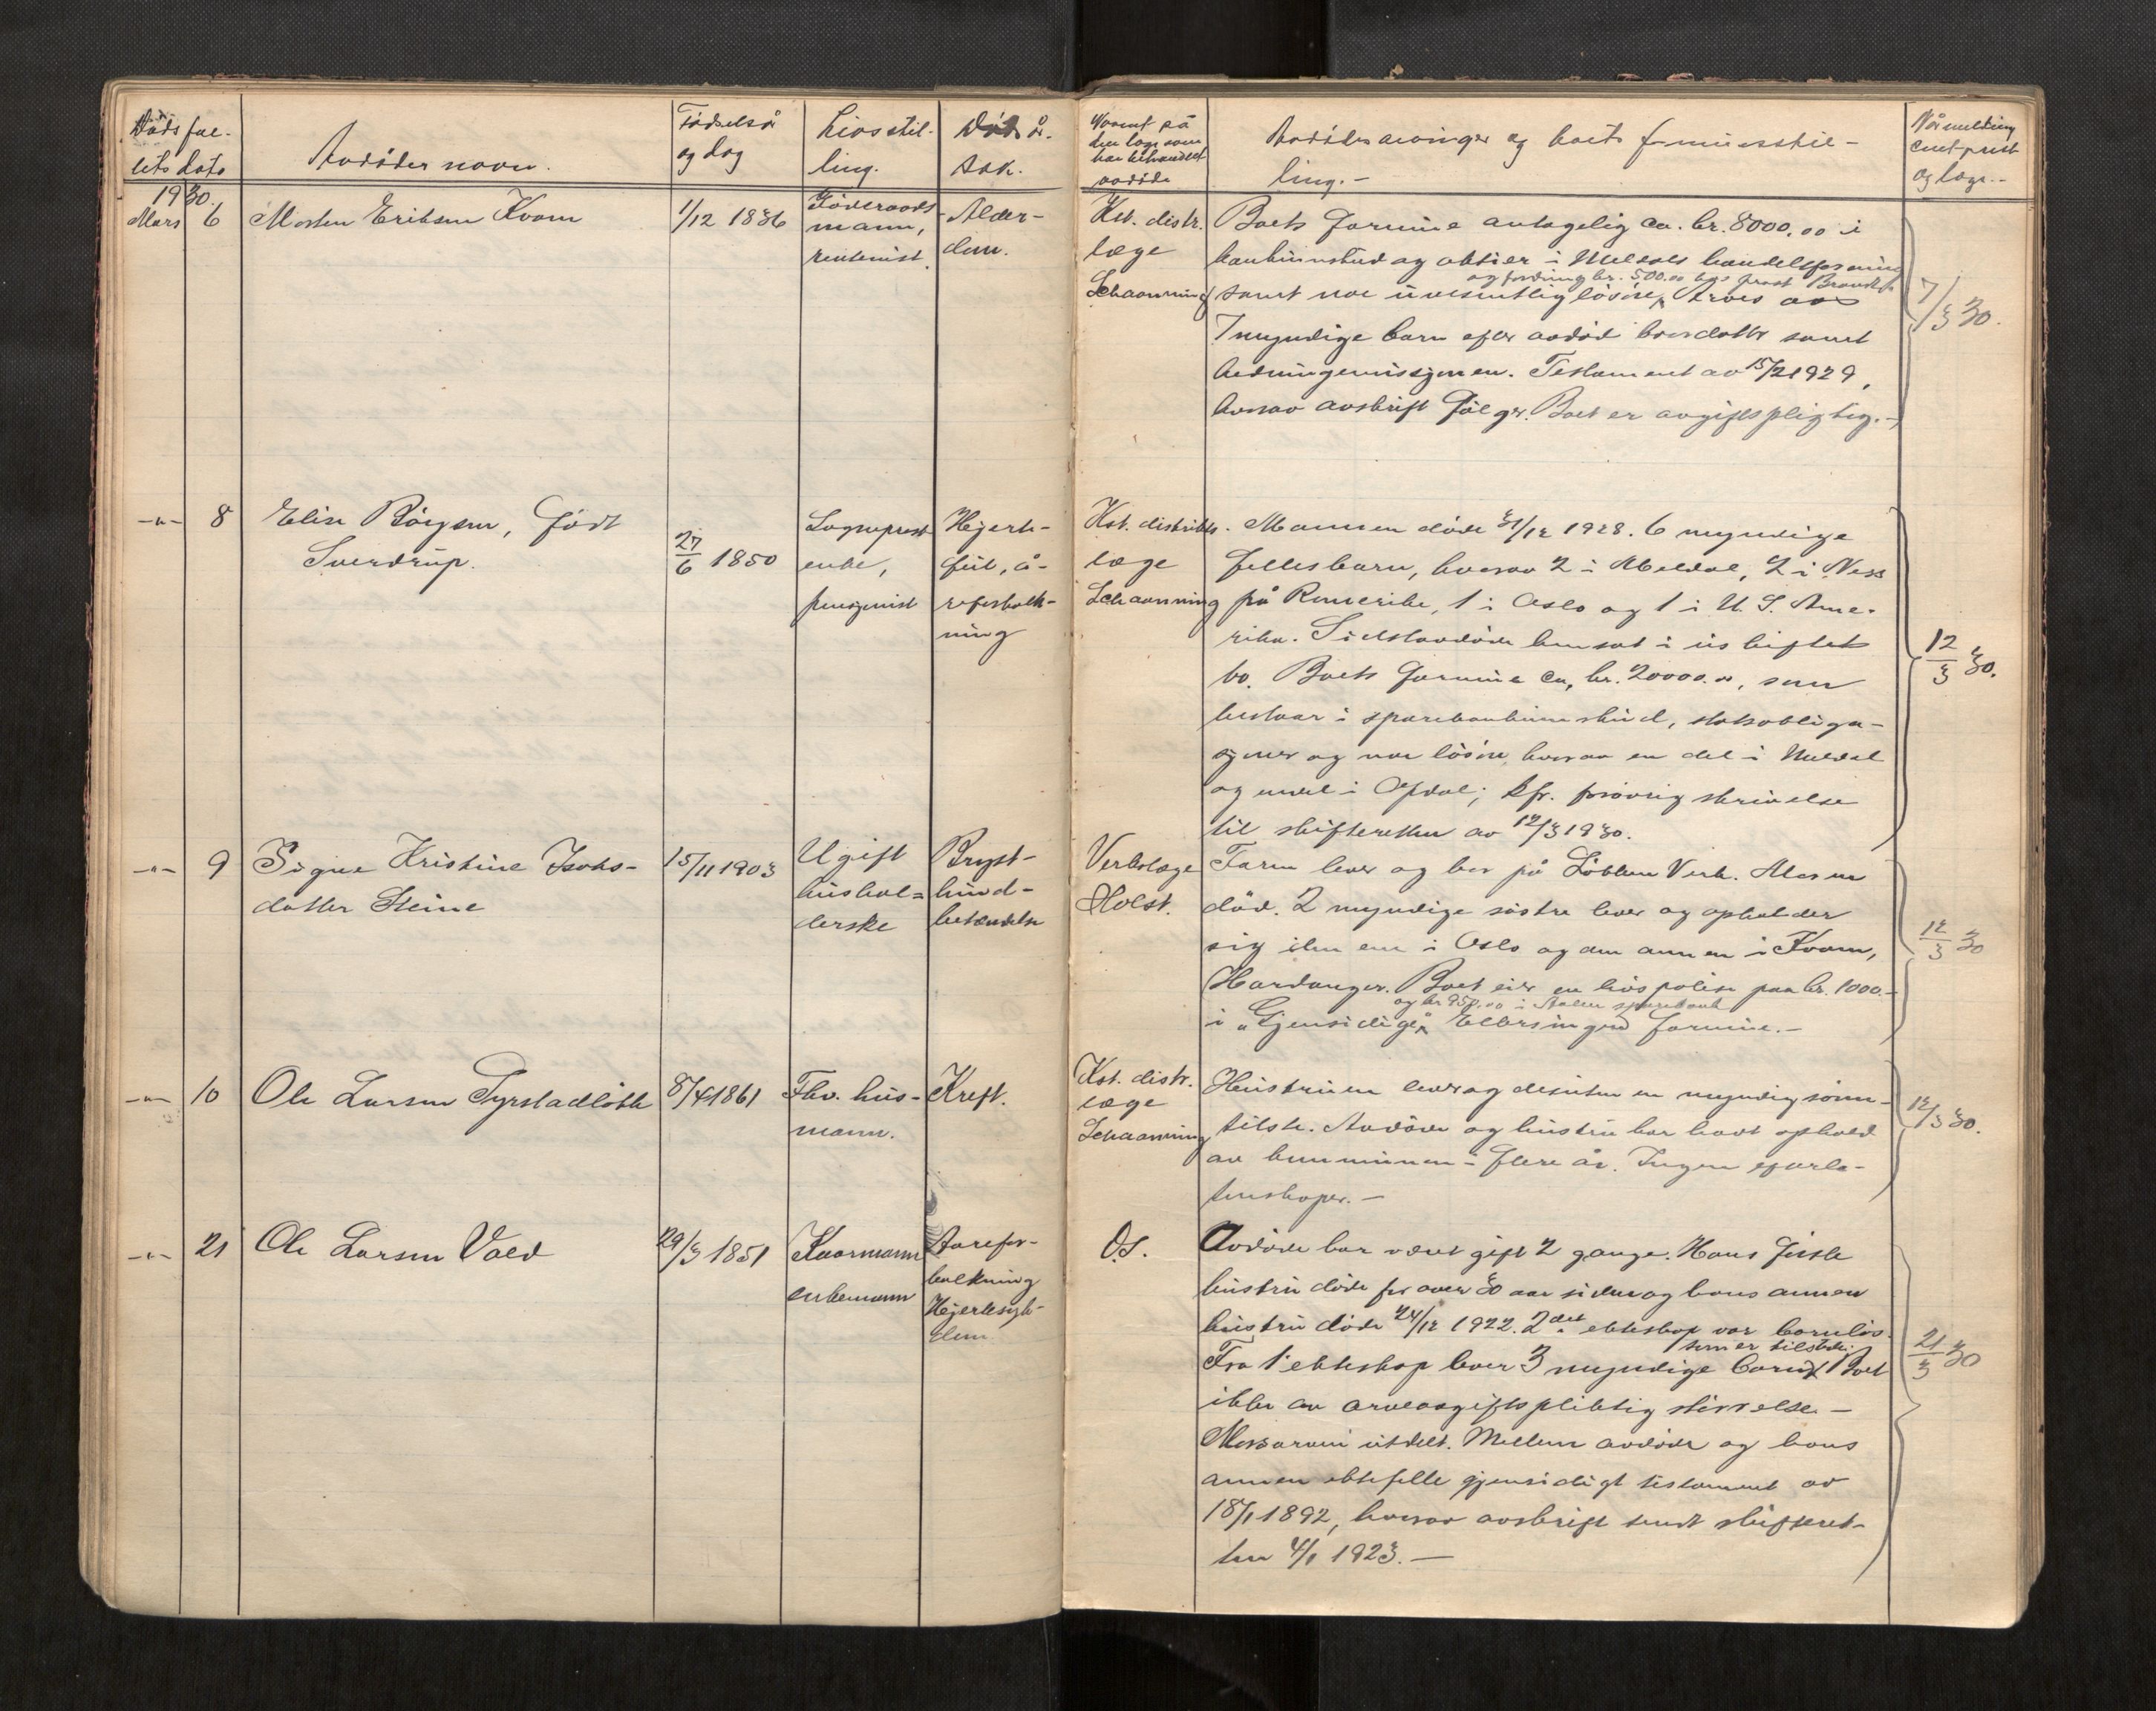 Dødsfal-
lets dato
Avdødes navn.
Fødselsår
og dag
Livsstil-
ling.
Døds år-
sak.
Navnet på
den læge som
har behandlet
avdøde
Avdødes arvinger og boets formuesstil-
ling.-
Når melding
sendt prest
og læge.-
1930.
Mars 6 Morten Eriksen Kvam 1/12 1836 Føderaads-
mann,
rentenist.
Alder-
dom.
Kst. distr.
læge
Schaanning
Boets formue antagelig ca. kr. 8000.00 i
bankinnskud og aktier i Meldals handelsforening
og fordring kr. 500.00 hos prost Brandt
samt noe uvesentlig løsøre, Arves av
7 myndige barn efter avdød brordatter samt
hedningemissjonen. Testament av 15/2 1929,
hvorav avskrift følger. Boet er avgiftspligtig.-
7/3 30.
-"- 8 Elise Böigsen, født
Sverdrup.
27/6 1850
Sogneprest
enke,
pensjonist
Hjerte-
feil, å-
reforkalk-
ning
Kst. distrikts-
læge
Schaanning
Mannen døde 31/12 1928. 6 myndige
fellesbarn, hvorav 2 i Meldal, 2 i Ness
på Romerike, 1 i Oslo og 1 i U. S. Ame-
rika. Sidstavdøde hensat i uskiftet
bo. Boets formue ca. kr. 20000.00, som
bestaar i sparebankinnskud, statsobliga-
sjoner og noe løsøre, hvorav en del i Meldal
og en del i Opdal; kfr. forøvrig skrivelse
til skifteretten av 12/3 1930.
12/3 30.
-"- 9 Signe Kristine Isaks-
datter Steine
15/11 1903
Ugift
hushol-
derske
Bryst-
hind-
betændelse
Verkslæge
Holst.
Faren lever og bor på Løkken Verk. Moren
død. 2 myndige søstre lever og opholder
sig den ene i Oslo og den annen i Kvam,
Hardanger. Boet eier en livspolise paa kr. 1000.-
og kr 950.00 i Aalen sparebank
i "Gjensidige". Ellers ingen formue.-
12/3 30
-"- 10 Ole Larsen Syrstadløkk 8/4 1861 Fhv. hus-
mann.
Kreft.
Kst. distr.
læge
Schaanning
Hustruen lever og desuten en myndig sønn
tilst. Avdøde og hustru har havt ophold
av kommunen i flere år. Ingen eferla-
tenskaper.-
12/3 30.
-"- 21 Ole Larsen Vold 29/3 1851 Kaarmann
enkemann
Aarefor-
kalkning
Hjertesyk-
dom
O.S.
Avdøde har været gift 2 gange. Hans første
hustru døde for over 30 aar siden og hans annen
hustru døde 24/12 1922. 2det ekteskap var barnløs.
som er tilstede.
Fra 1. ekteskap lever 3 myndige barn. Boet
ikke av arveavgiftspliktig størrelse.-
Morsarven utdelt. Mellem avdøde og hans
annen ektefelle gjensidigt testament av
18/1 1892, hvorav avskrift sendt skifteret-
ten 4/1 1923.-
21/3 30